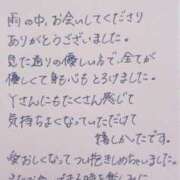 雨の中、お会いしてくださり
ありがとうございました。
見た通りの優しい方で、全てが
優しくて身も心もとろけました。
Yさんにもたくさん感じて
気持ちよくなっていただけて
嬉しかったです。
愛おしくなってつい抱きしめちゃいました。